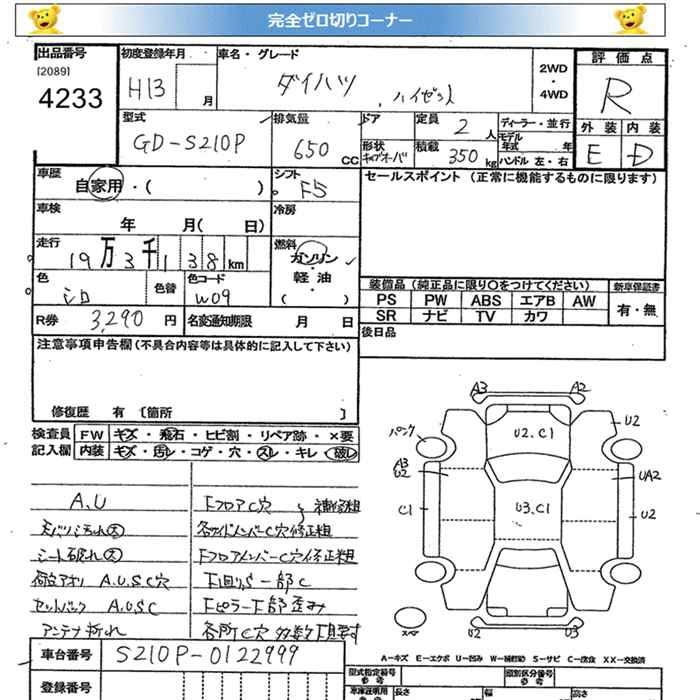 完全ゼロ切りコーナー
出品番号
[2089]
4233
初度登録年月
H13 月
車名・グレード
ダイハツ ハイゼット
2WD
・
4WD
評価点
R
外装 内装
E D
型式
GD-S210P
排気量
650 CC
ドア
形状
定員
2 人
積載
350 kg
ディーラー・並行
モデル
年式 年
ハンドル 左・右
車歴
自家用・( )
シフト
F5
セールスポイント (正常に機能するものに限ります)
車検
年 月( 日)
冷房
走行
19万3千138km
燃料
ガソリン
・
軽油
( )
色
シロ
色替
色コード
W09
装備品 (純正品に限り○をつけてください)
新車保証書
PS PW ABS エアB AW
SR ナビ TV カワ
有・無
R券 3,290 円
名変通知期限 月 日
後日品
注意事項申告欄 (不具合内容等は具体的に記入して下さい)
修復歴 有 〔箇所 〕
検査員
記入欄
FW キズ・飛石・ヒビ割・リペア跡・×要
内装 キズ・汚レ・コゲ・穴・スレ・キレ・破レ
A.U
天バリ汚れ大
シート破れ大
荷台アオリ A.U.S.C穴
セットバック A.U.S.C
アンテナ折れ
FフロアC穴 補修粗
各サイドメンバーC穴修正粗
FフロアメンバーC穴修正粗
下廻りS一部C
Fピラー下部歪み
各所C穴多数
A3 A2
U2
U2.C1
パンク
A3
U2
UA2
C1
U3.C1
U2
スペア
U2 U3
A-キズ E-エクボ U-凹み W-補修跡 S-サビ C-腐食 XX-交換済
車台番号 S210P-0122999
登録番号
型式指定番号
参考
類別区分番号
参考
車庫証明用
参考
長さ
幅
高さ